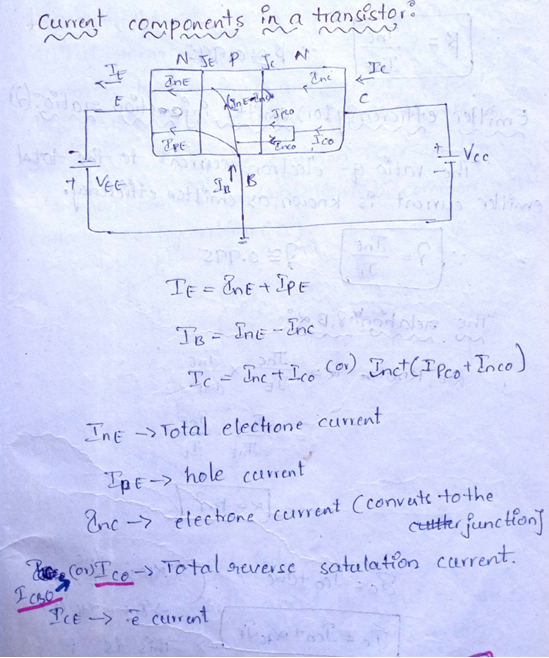 Current components in a transistor:
N JE P JC N
IE InE Inc IC
E (InE-Inc) C
IPCO
IPE Inco ICO
VEE IB B VCC
IE = InE + IPE
IB = InE - Inc
IC = Inc + ICO (or) Inc + (IPCO + Inco)
InE → Total electrone current
IpE → hole current
Inc → electrone current (converts to the
function]
(or) ICO → Total reverse satulation current.
ICBO
ICE → e current